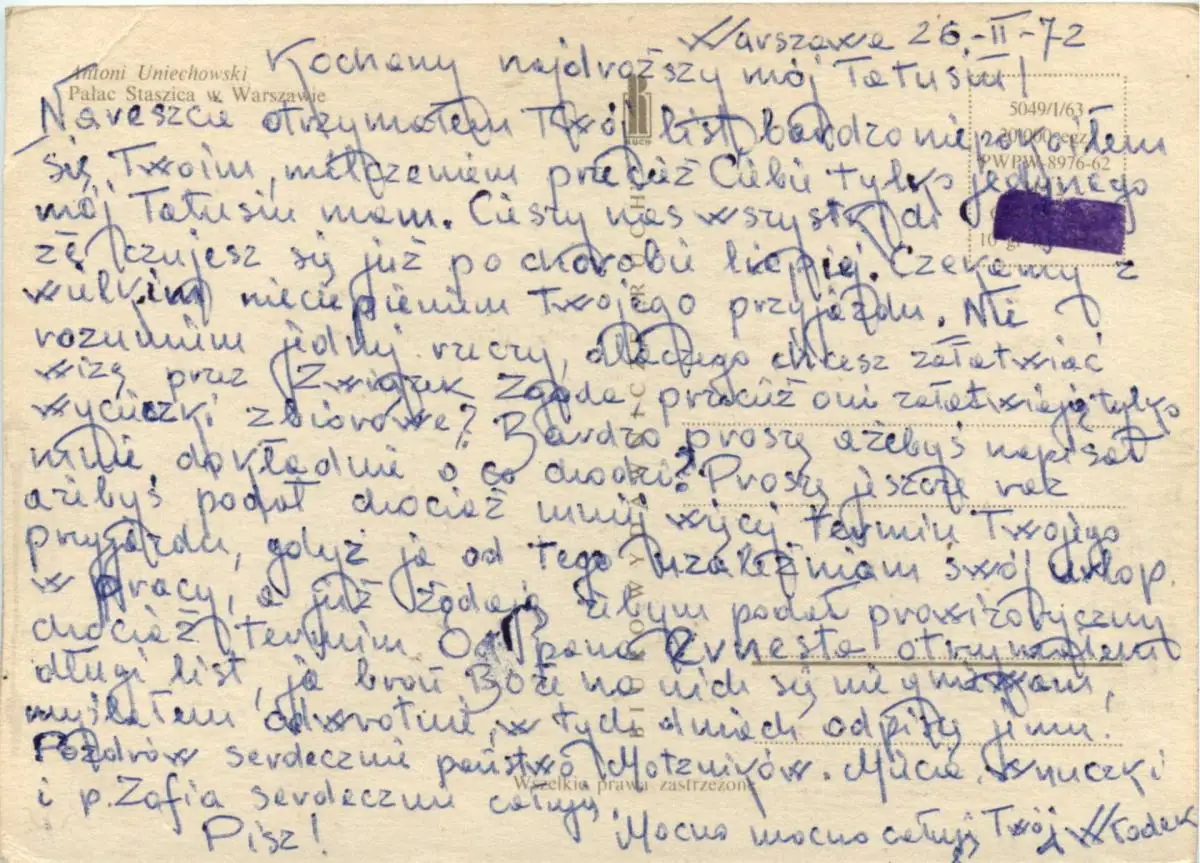 Warszawa 26-II-72
Kochany najdroższy mój Tatusiu!
Antoni Uniechowski
Pałac Staszica w Warszawie
RUCH
5049/I/63
200000 egz.
PWPW-8976-62
Nareszcie otrzymałem Twój list, bardzo niepokoiłem
się Twoim milczeniem przecież Ciebie tylko jedynego
mój Tatusiu mam. Cieszy nas wszystkich
że czujesz się już po chorobie lepiej. Czekamy z
wielkim niecierpieniem Twojego przyjazdu. Nie
rozumiem jednej rzeczy, dlaczego chcesz załatwiać
wizę przez Związek Zgoda przecież oni załatwiają tylko
wycieczki zbiorowe? Bardzo proszę ażebyś napisał
mnie dokładnie o co chodzi? Proszę jeszcze raz
ażebyś podał chociaż mniej więcej termin Twojego
przyjazdu, gdyż ja od tego uzależniam swój urlop
w pracy, a już żądają żebym podał prowizoryczny
chociaż termin. Od pana Ernesta otrzymałem
długi list, ja broń Boże na nich się nie gniewam,
myślałem odwrotnie, w tych dniach odpiszę jemu.
Pozdrów serdecznie państwo Motzników. Mucia, wnuczki
i p. Zofia serdecznie całują,
Wszelkie prawa zastrzeżone
Pisz! Mocno mocno całuję Twój Włodek